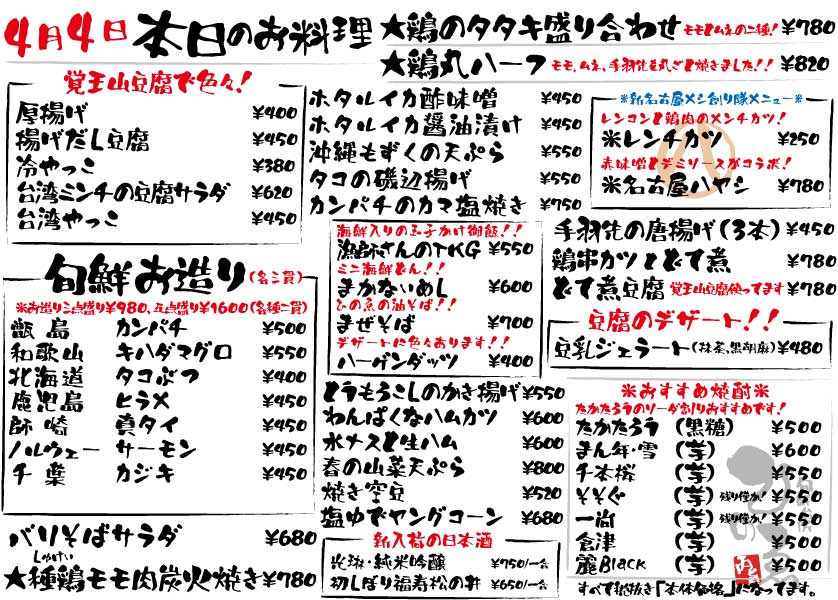 4月4日 本日のお料理
★鶏のタタキ盛り合わせ モモとムネの二種! ¥780
★鶏丸ハーフ モモ、ムネ、手羽先を丸ごと焼きました!! ¥820
覚王山豆腐で色々!
厚揚げ ¥400
揚げだし豆腐 ¥450
冷やっこ ¥380
台湾ミンチの豆腐サラダ ¥620
台湾やっこ ¥450
旬鮮お造り(各二貫)
※お造り三点盛り¥980、五点盛り¥1600(各種二貫)
甑島 カンパチ ¥500
和歌山 キハダマグロ ¥550
北海道 タコぶつ ¥400
鹿児島 ヒラメ ¥450
師崎 真タイ ¥450
ノルウェー サーモン ¥450
千葉 カジキ ¥450
バリそばサラダ ¥680
しゅけい
★種鶏モモ肉炭火焼き ¥780
ホタルイカ酢味噌 ¥450
ホタルイカ醤油漬け ¥450
沖縄もずくの天ぷら ¥550
タコの磯辺揚げ ¥550
カンパチのカマ塩焼き ¥750
海鮮入りの玉子かけ御飯!!
漁師さんのTKG ¥550
ミニ海鮮どん!!
まかないめし ¥600
ひの魚の油そば!!
まぜそば ¥700
デザートに色々あります!!
ハーゲンダッツ ¥400
とうもろこしのかき揚げ ¥550
わんぱくなハムカツ ¥600
水ナスと生ハム ¥600
春の山菜天ぷら ¥800
焼き空豆 ¥520
塩ゆでヤングコーン ¥680
新入荷の日本酒
光琳・純米吟醸 ¥750/一合
初しぼり福寿松の井 ¥650/一合
※新名古屋メシ創り隊メニュー※
レンコンと鶏肉のメンチカツ!
※レンチカツ ¥250
赤味噌とデミソースがコラボ!
※名古屋ハヤシ ¥780
手羽先の唐揚げ(3本) ¥450
鶏串カツとどて煮 ¥780
どて煮豆腐 覚王山豆腐使ってます ¥780
豆腐のデザート!!
豆乳ジェラート(抹茶、黒胡麻) ¥480
※おすすめ焼酎※
たかたろうのソーダ割りおすすめです!
たかたろう (黒糖) ¥500
まん年・雪 (芋) ¥600
千本桜 (芋) ¥500
そそぐ (芋) 残り僅か! ¥550
一尚 (芋) 残り僅か! ¥550
倉津 (芋) ¥500
麗Black (芋) ¥500
すべて税抜き「本体価格」になってます。